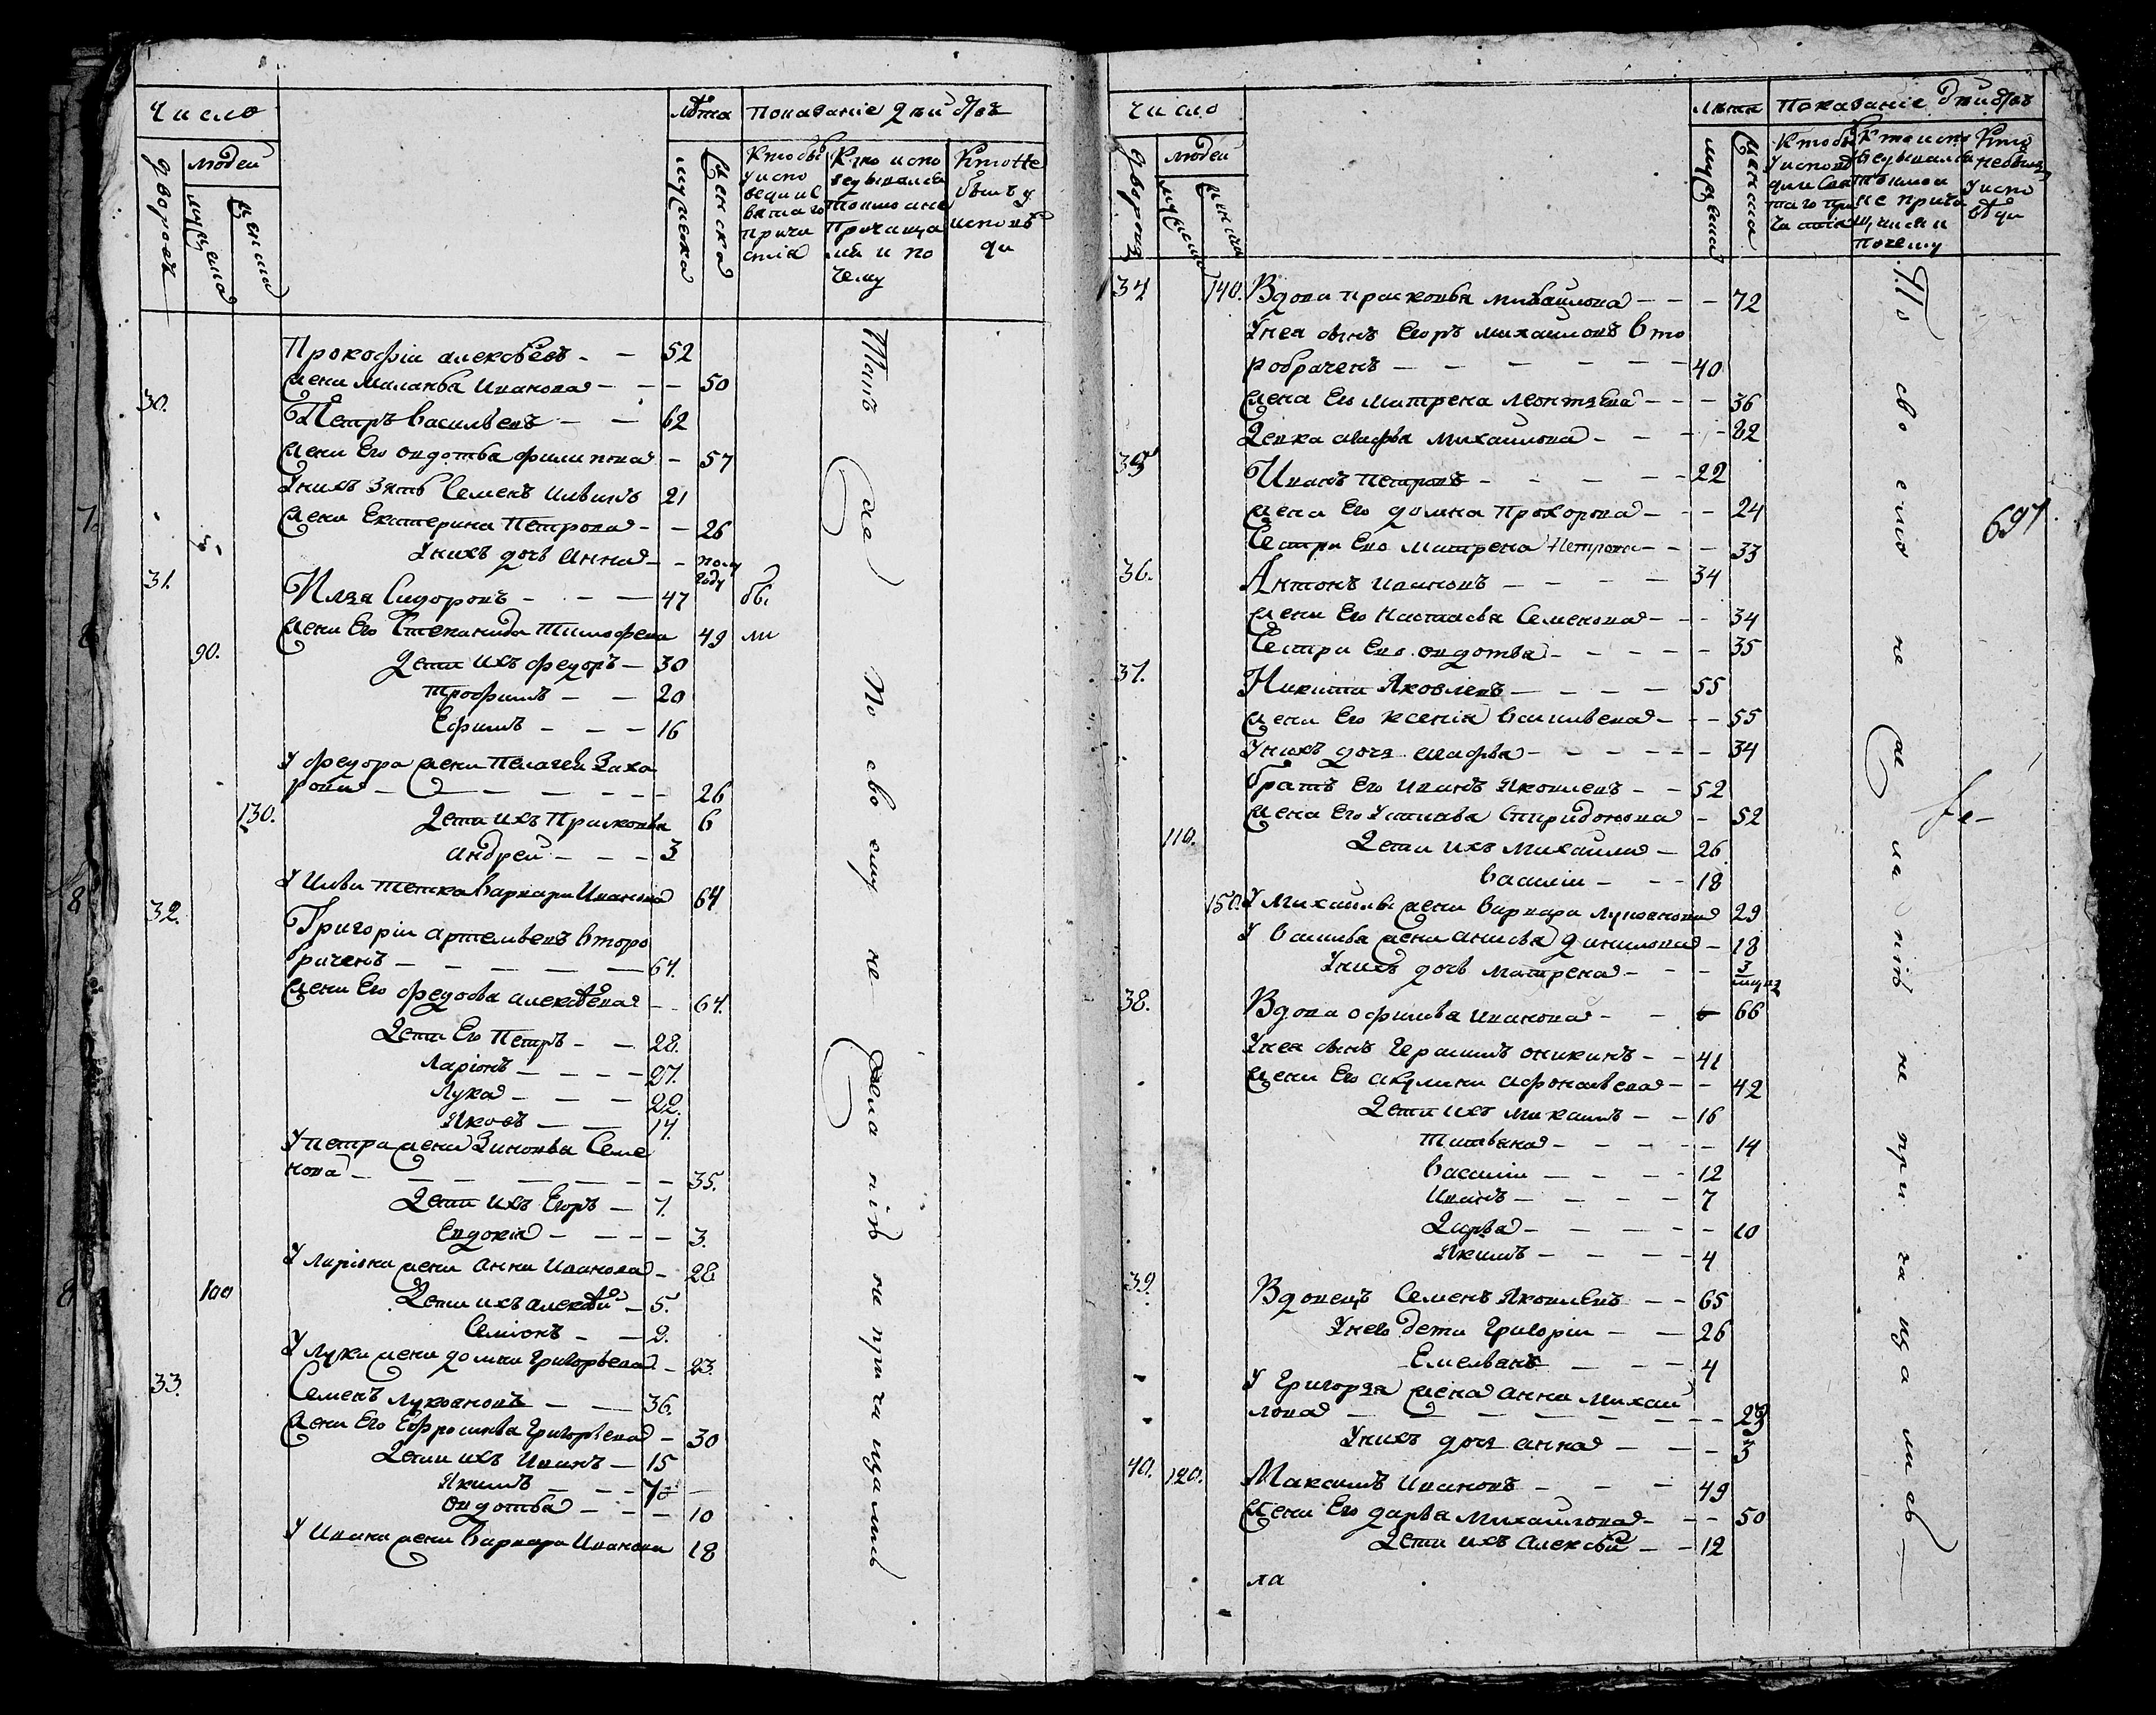 Число
Лѣта
Показаніе дѣйствъ
дворовъ
людей
мужеска
женска
мужеска
женска
Кто был
у испо
веди и с
вятаго
прича
стія
Кто испо
ведывался
токмо а не
причаща
лся и по
чему
Кто не
былъ у
исповѣ
ди
Прокофіи алексѣевъ - - 52
жена Маланья Иванова - - - 50
30.
Петръ Васильевъ - - 62
жена Его овдотья филипова - 57
Унихъ зять Семенъ Ильинъ 21
жена Екатерина Петрова - - 26
Унихъ дочь Анна - - полу
году
31.
Илья Сидоровъ - - - 47
бы
жена Его Степанида Тимофева 49
ли
90.
дети ихъ федоръ - 30
трофимъ - - 20
Ефимъ - - - 16
У федора жена Пелагея Заха
рова - - - - - - - 26
130.
дети ихъ Прасковья 6
андреи - - - 3
У Ильи тетка варвара Иванова 64
32.
Григоріи артемьевъ второ
браченъ - - - - - 64.
жена Его федосья алексѣева - - 64.
дети Его Петръ - - 28.
Ларіонъ - - - - 27.
Лука - - - 22.
Яковъ - - - 14.
У петра жена Зиновья Семе
нова - - - - - - - 35.
дети ихъ Егоръ - 7.
Евдокія - - - - 3.
У ларіона жена анна Иванова - 28
100
дети ихъ алексѣй - 5.
Семіонъ - - 2.
У Луки жена домна григорьева - 23.
33.
Семенъ лукояновъ - - 36.
жена Его Ефросинья григорьева - 30
дети ихъ Иванъ - 15
Якимъ - - - 7
овдотья - - - 10
У Ивана жена варвара Иванова 18
По своему не
желанію не причащались
7.
8
8
8
Число
лѣта
Показаніе дѣйствъ
дворовъ
людей
мужеска
женска
мужеска
женска
Кто был
Кто испо
ведывался
токмо а
не прича
щался и
почему
Кто
небыл
у испо
вѣди
34
140.
Вдова прасковья михайлова - - - 72
Унея сынъ Егоръ михаиловъ вто
робраченъ - - - - - - 40
жена Его матрена леонтьева - - - 36
девка агафья михаилова - - - - 22
35
Иванъ Петровъ - - - - - 22
жена Его домна Прохорова - - - 24
Сестра Его матрена Петрова - - - 33
36.
Антонъ ивановъ - - - - 34
жена Его настасья Семенова - - - 34
Сестра Его овдотья - - - - - 35
37.
Никита Яковлевъ - - - - 55
жена Его ксенія васильева - - - 55
Унихъ дочь агафья - - - - - - 34
братъ Его иванъ Яковлевъ - - 52
жена Его Устинья Спиридонова - 52
110.
дети ихъ михаила - 26
василіи - - - 18
150.
У Михаилы жена варвара лукоянова 29
У василья жена анисья данилова - 18
Унихъ дочь матрена - - - 3
38.
Вдова офимья иванова - - - 66
Унея сынъ Герасимъ оникинъ - - 41
жена Его акулина афонасьева - - 42
дети ихъ максимъ - - 16
татьяна - - - - - 14
василіи - - - - 12
иванъ - - - - 7
дарья - - - - - 10
Якимъ - - - - 4
39.
Вдовецъ Семенъ Яковлевъ - - 65
Унего дети григоріи - - 26
Емельянъ - - - 4
У григорья жена анна михаи
лова - - - - - - - - 23
Унихъ дочь анна - - - - 3
40.
120.
Максимъ Ивановъ - - - 49
жена Его дарья михаилова - - - 50
дети ихъ алексѣй - - 12
ла
По своему не
желанію не причащались
697